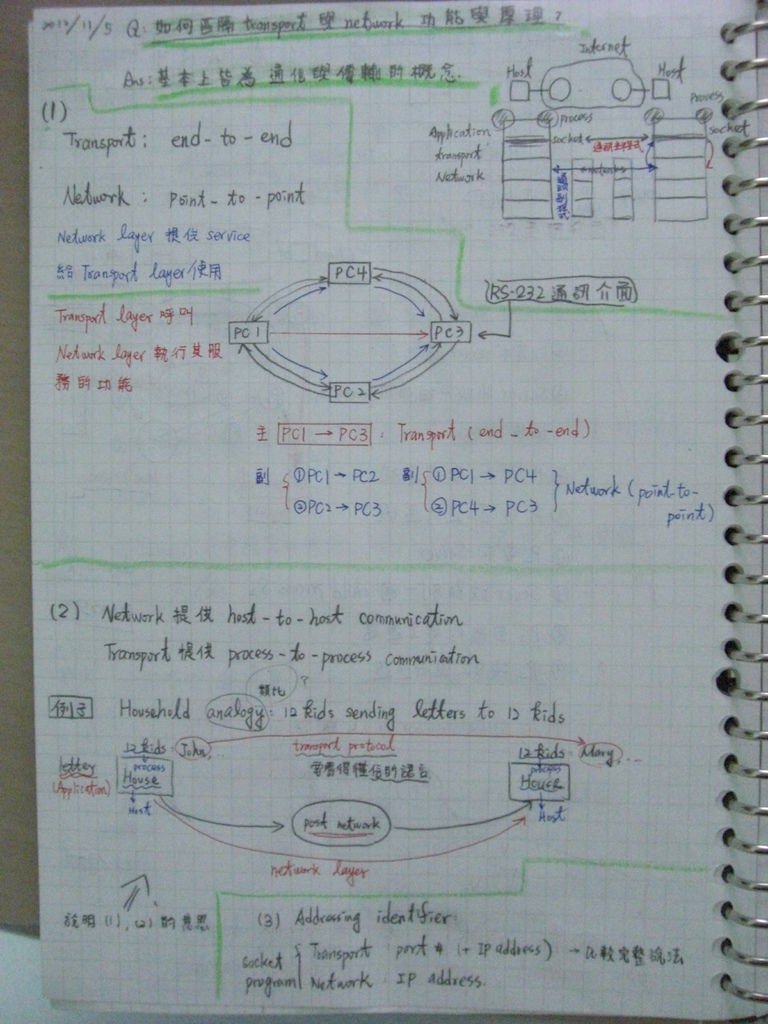 2012/11/5 Q: 如何區隔 transport 與 network 功能與原理?
Ans: 基本上皆為通信與傳輸的概念.
Internet
Host Host
process process
socket socket
Application
transport
Network
(1)
Transport: end-to-end
Network: point-to-point
Network layer 提供 service
給 Transport layer 使用
Transport layer 呼叫
Network layer 執行其服
務的功能
RS-232 通訊介面
PC4
PC1 PC3
PC2
主 PC1 → PC3: Transport (end-to-end)
副 ①PC1 → PC2 副 ①PC1 → PC4
②PC2 → PC3 ②PC4 → PC3
Network (point-to-
point)
(2) Network 提供 host-to-host communication
Transport 提供 process-to-process communication
類比?
例子 Household analogy: 12 kids sending letters to 12 kids
12 kids: John,... transport protocol 12 kids: Mary,...
letter process process
(Application) House House
Host Host
post network
network layer
說明(1),(2)的意思
(3) Addressing identifier:
socket Transport: port # (+ IP address) → 比較完整說法
program Network: IP address.